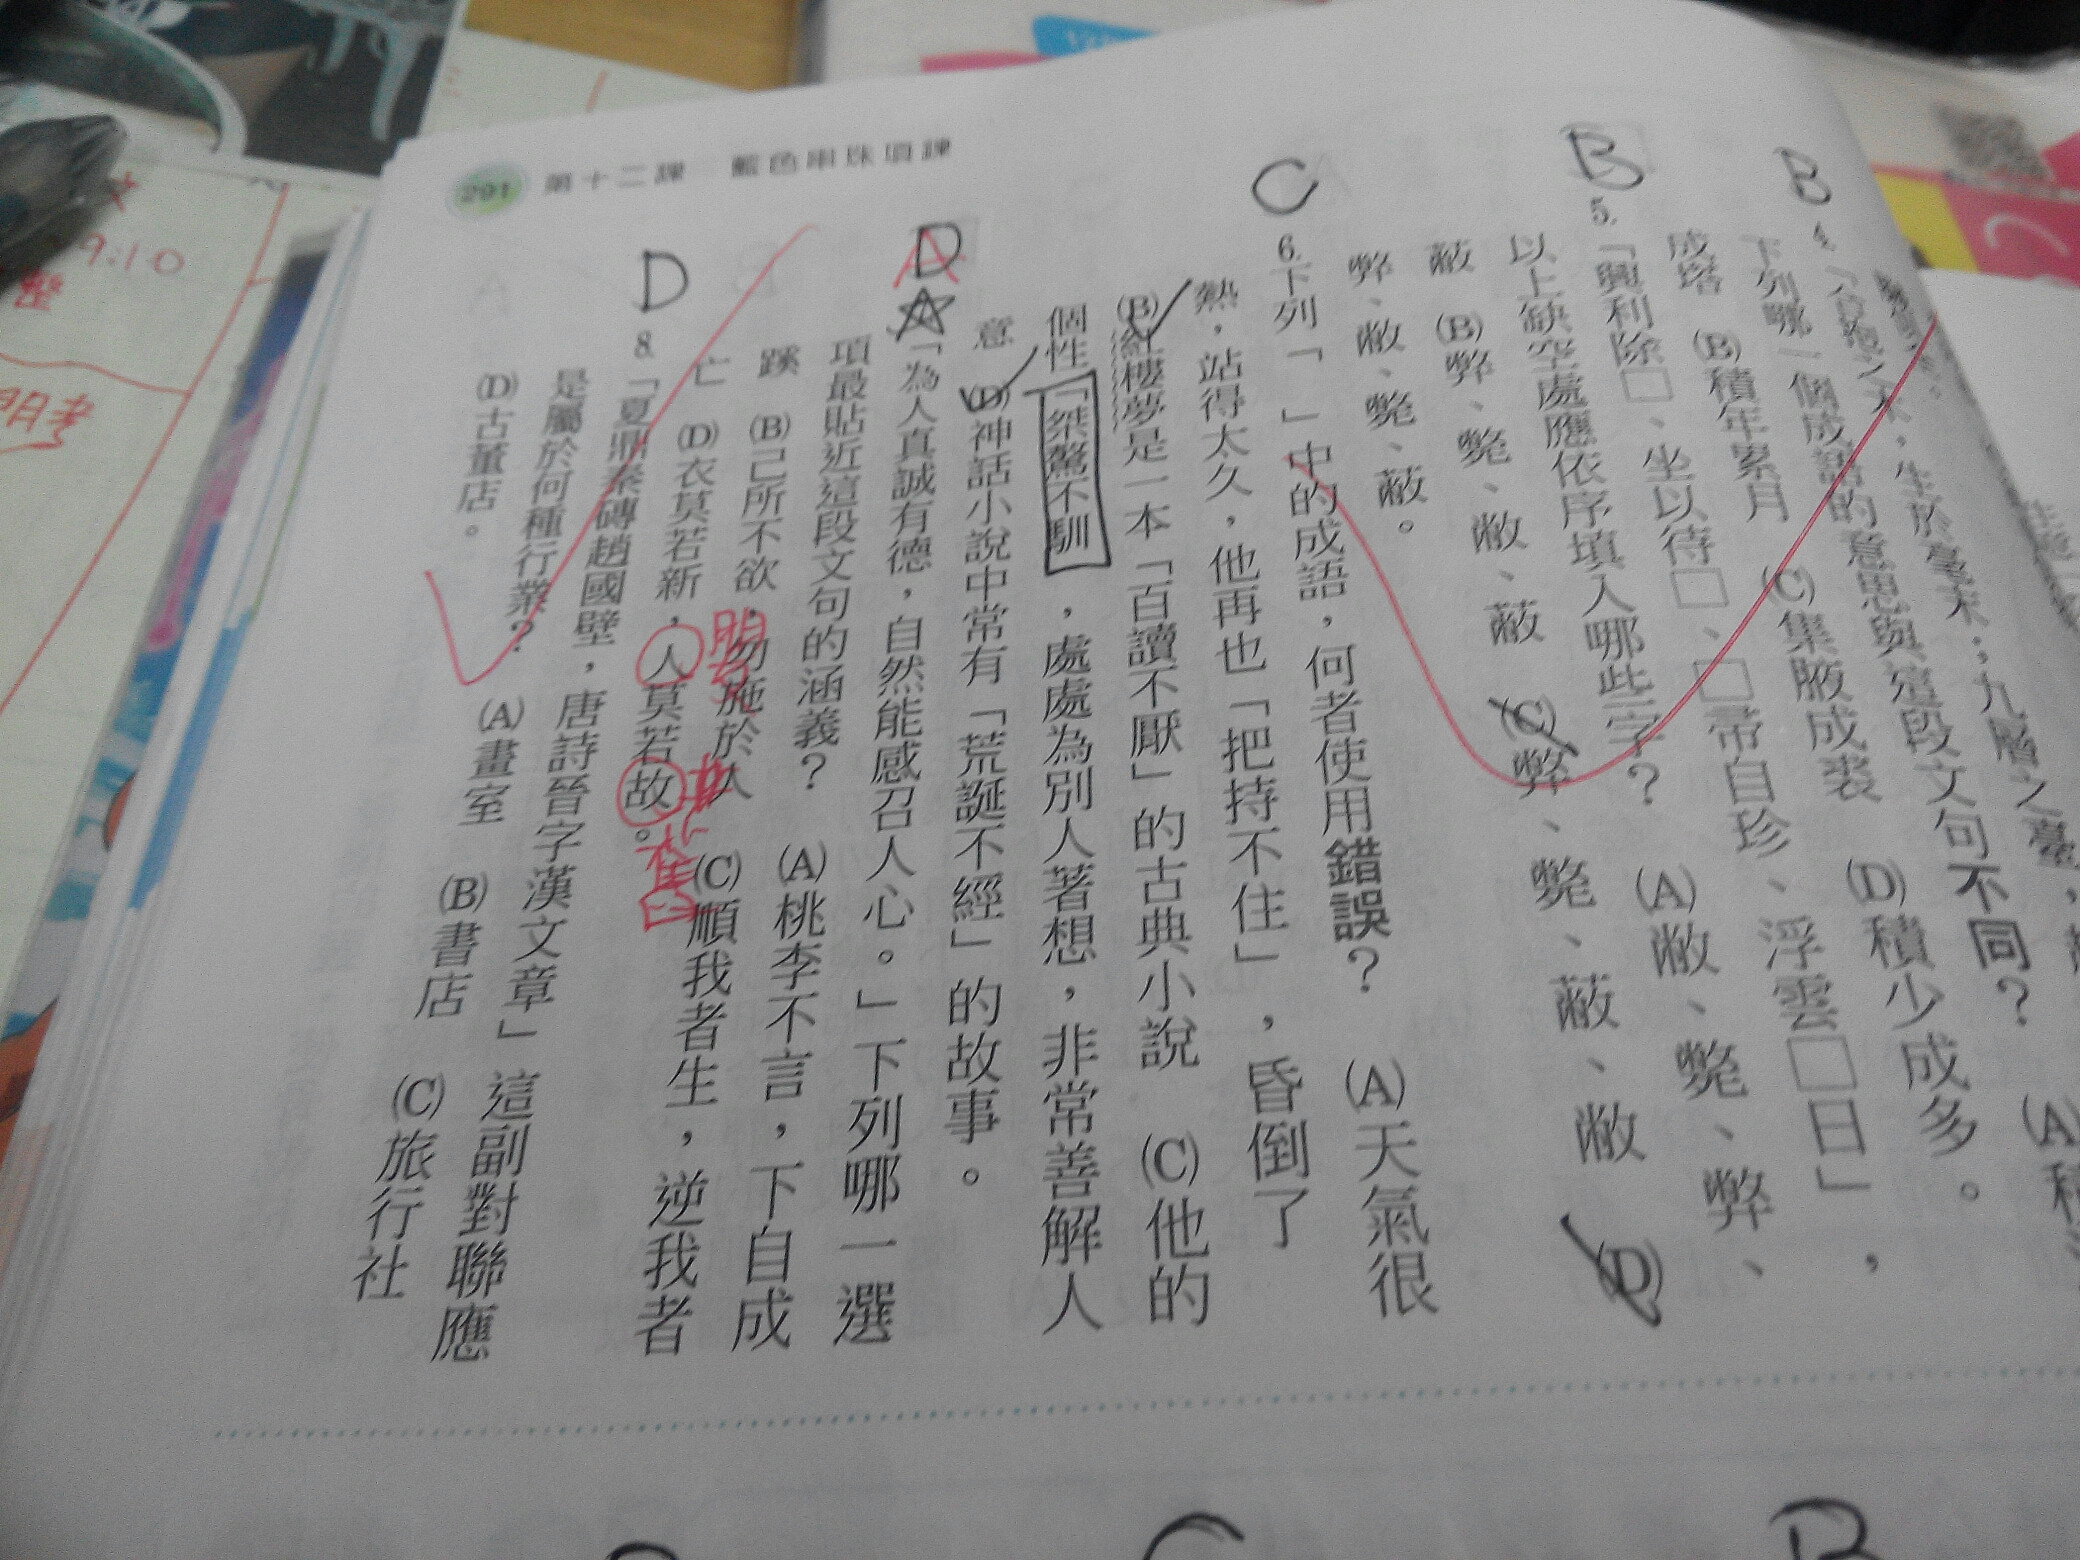 291 第十二課 藍色串珠項鍊
B
4.「合抱之木,生於毫末;九層之臺,
下列哪一個成語的意思與這段文句不同? (A)
成塔 (B)積年累月 (C)集腋成裘 (D)積少成多。
B
5.「興利除□、坐以待□、□帚自珍、浮雲□日」,
以上缺空處應依序填入哪些字? (A)敝、斃、弊、
蔽 (B)弊、斃、敝、蔽 (C)弊、斃、蔽、敝 (D)
弊、敝、斃、蔽。
C
6.下列「 」中的成語,何者使用錯誤? (A)天氣很
熱,站得太久,他再也「把持不住」,昏倒了
(B)紅樓夢是一本「百讀不厭」的古典小說 (C)他的
個性「桀驁不馴」,處處為別人著想,非常善解人
意 (D)神話小說中常有「荒誕不經」的故事。
D
A
「為人真誠有德,自然能感召人心。」下列哪一選
項最貼近這段文句的涵義? (A)桃李不言,下自成
蹊 (B)己所不欲,勿施於人 (C)順我者生,逆我者
亡 (D)衣莫若新,人莫若故。
舊
D
8.「夏鼎秦磚趙國壁,唐詩晉字漢文章」這副對聯應
是屬於何種行業? (A)畫室 (B)書店 (C)旅行社
(D)古董店。
9:10
整
明考
C
B